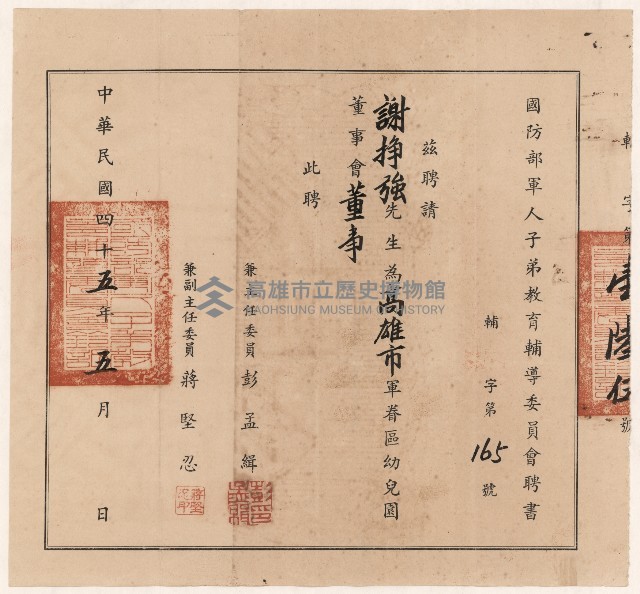 輔字第壹陸伍號
國防部軍人子弟教育輔導委員會聘書
輔字第165號
茲聘請
謝掙強先生為高雄市軍眷區幼兒園
董事會董事
此聘
兼主任委員彭孟緝
兼副主任委員蔣堅忍
中華民國四十五年五月 日
高雄市立歷史博物館
KAOHSIUNG MUSEUM OF HISTORY